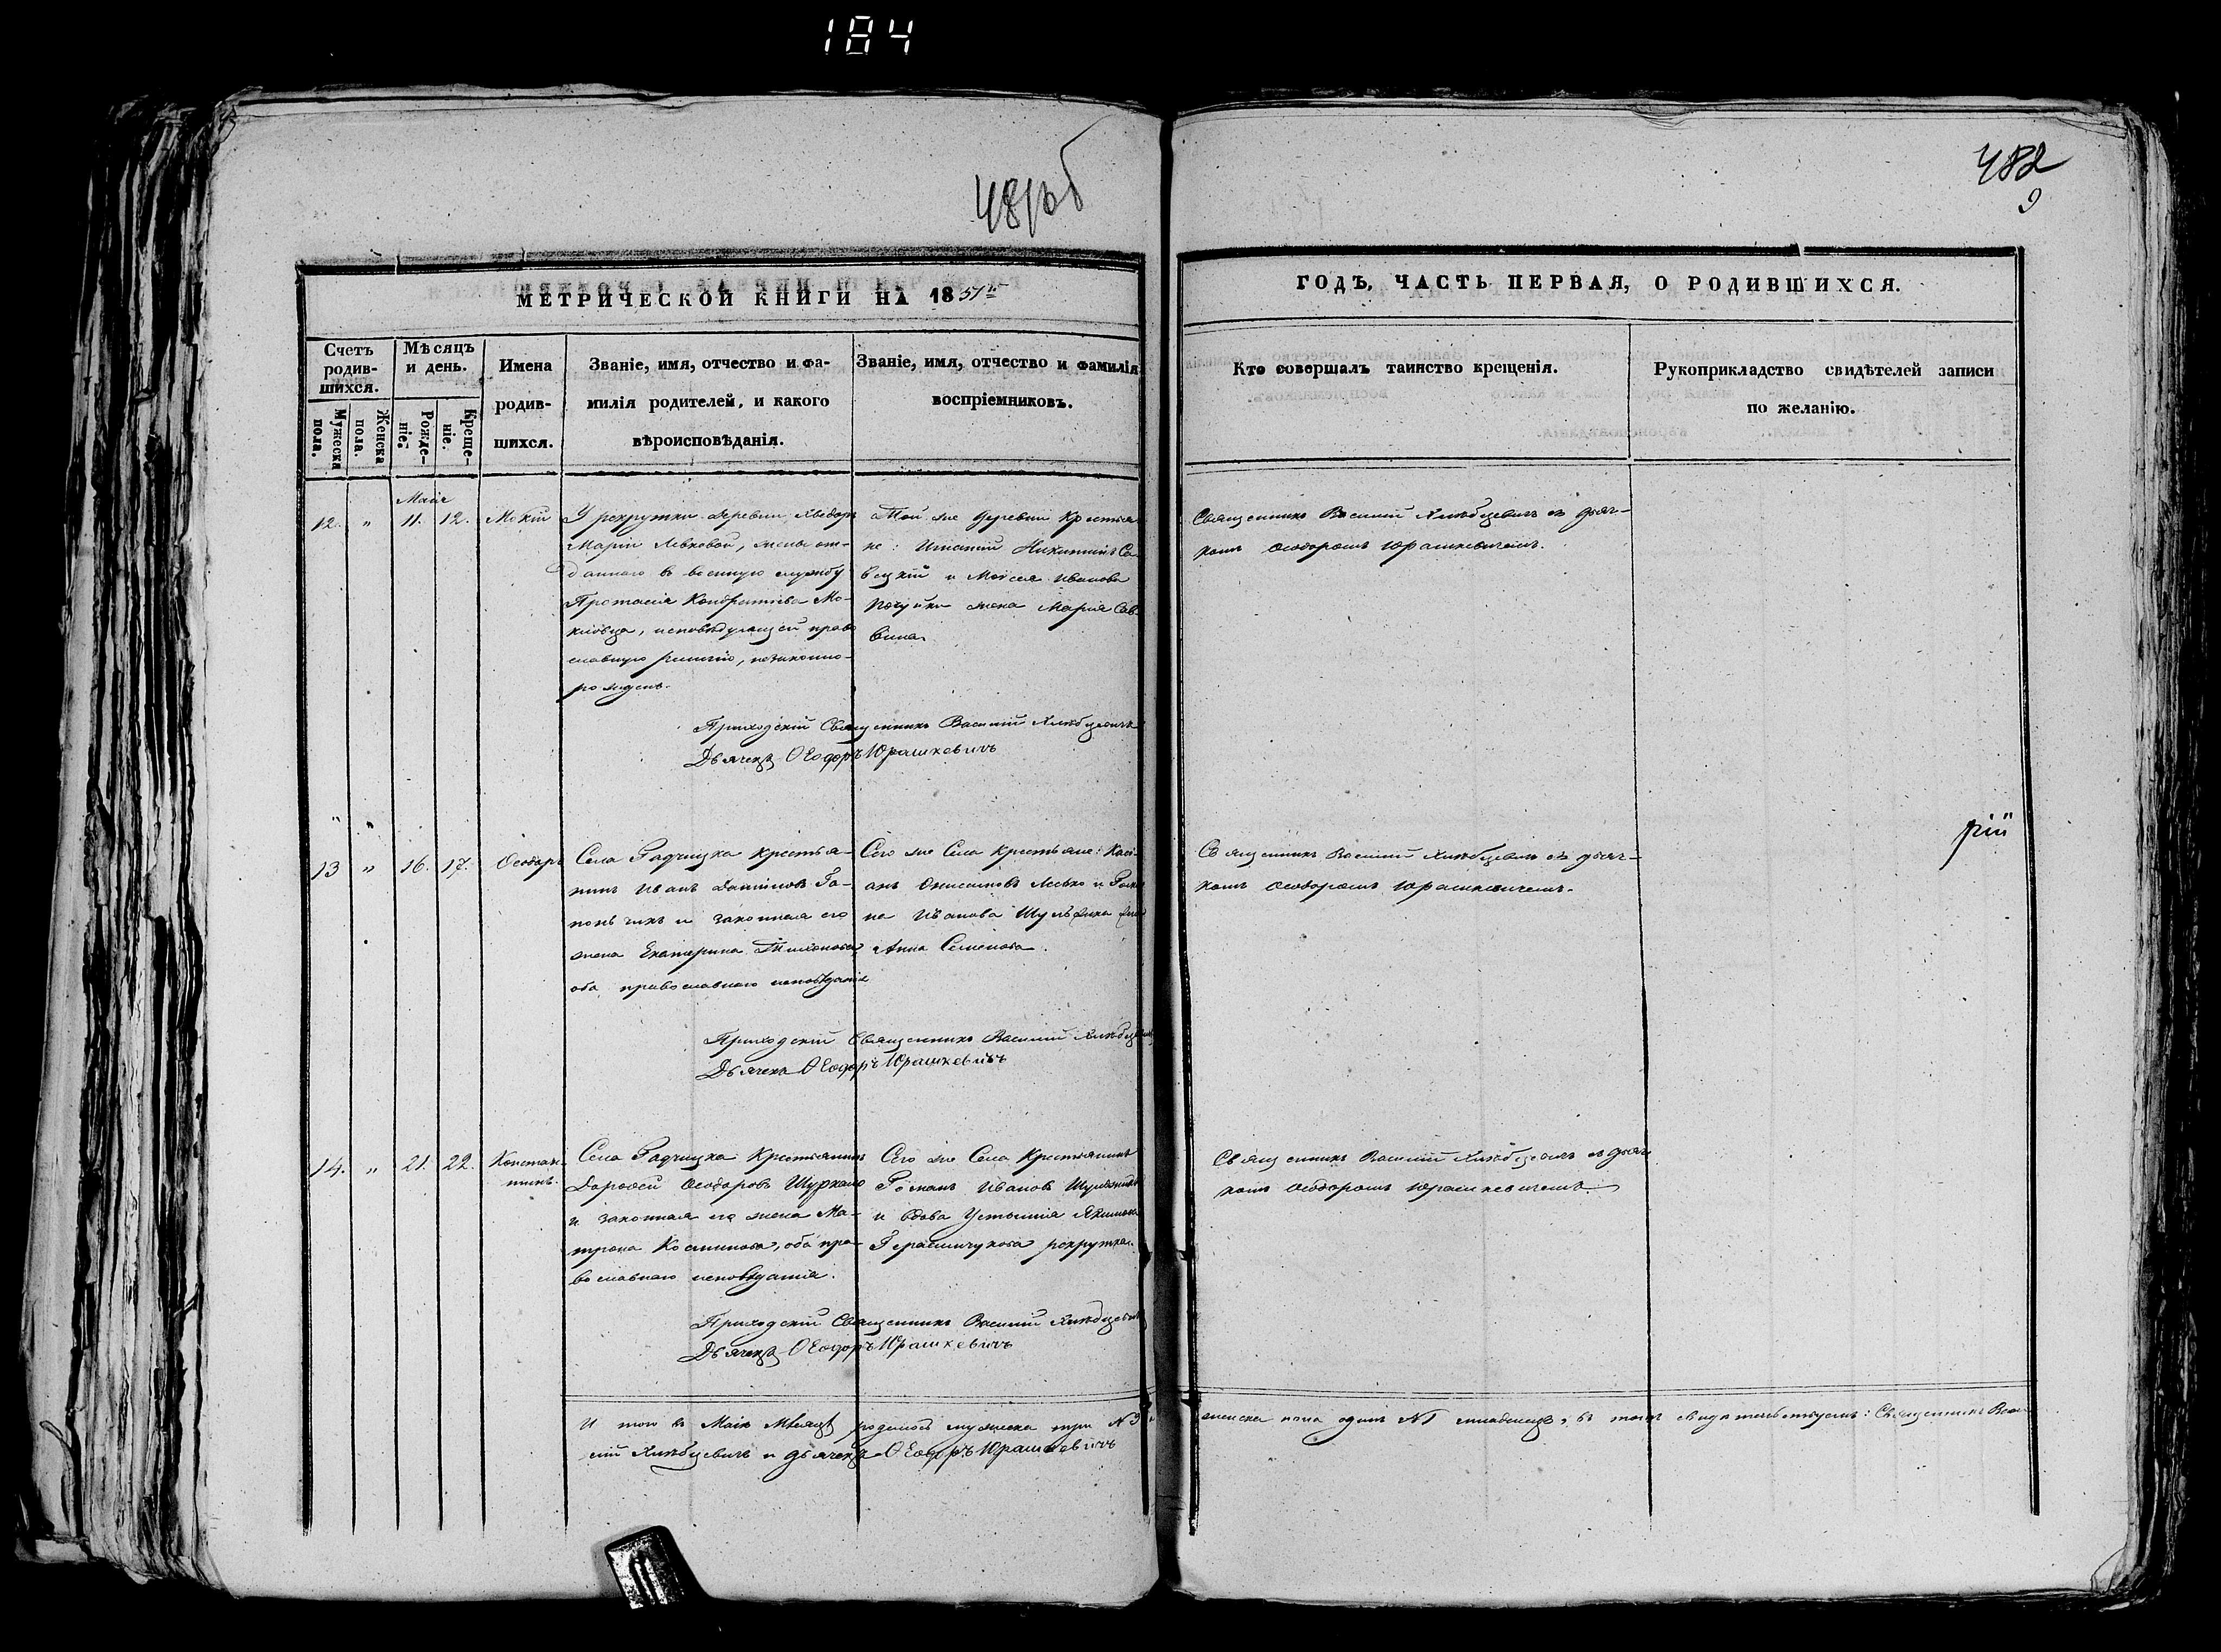 184
481об
482
9
МЕТРИЧЕСКОЙ КНИГИ НА 1851й
ГОДЪ, ЧАСТЬ ПЕРВАЯ, О РОДИВШИХСЯ.
Счетъ родив-шихся.
Мужеска пола.
Женска пола.
Мѣсяцъ и день.
Рожде-ніе.
Креще-ніе.
Имена
родив-
шихся.
Званіе, имя, отчество и фа-
милія родителей, и какого
вѣроисповѣданія.
Званіе, имя, отчество и фамилія
воспріемниковъ.
Кто совершалъ таинство крещенія.
Рукоприкладство свидѣтелей записи
по желанію.
Маія
12. " 11. 12. Мокій
У рекрутки деревни
Маріи Левковой, жены от-
даннаго въ военную службу
Протасія Кондратіева Мо-
исповѣдующей право
славную религію, незаконно-
рожденъ.
Той же деревни Крестья
не: Игнатій Никитинъ Са
вецкій и Моѵсея Иванова
жена Марія Сав
вина
Священникъ Василій Хлѣбцевичъ съ дьяч-
комъ Ѳеодоромъ Юрашкевичемъ.
Приходскій Священникъ Василій Хлѣбцевичъ
Дьячекъ Ѳеодоръ Юрашкевичъ
рій
13 " 16. 17. Ѳеодоръ
Села Радчицка крестья-
нинъ Иванъ Даниловъ Га-
понъчикъ и законная его
жена Екатерина Тихонова
оба православнаго исповѣданія
Сего же Села Крестьяне: Касі-
анъ Онисимовъ и Рома
на Иванова жена
Анна Семенова.
Священникъ Василій Хлѣбцевичъ съ дьяч-
комъ Ѳеодоромъ Юрашкевичемъ.
Приходскій Священникъ Василій Хлѣбцевичъ
Дьячекъ Ѳеодоръ Юрашкевичъ
14. " 21. 22. Констан-
тинъ.
Села Радчицка Крестьянинъ
Дороѳей Ѳеодоровъ Шурхало
и законная его жена Ма-
трона Космина, оба пра-
вославнаго исповѣданія.
Сего же Села Крестьянинъ
Романъ Ивановъ
и вдова Устинія Якимова
Герасимчукова рекрутка.
Священникъ Василій Хлѣбцевичъ съ дьяч
комъ Ѳеодоромъ Юрашкевичемъ.
Приходскій Священникъ Василій Хлѣбцевичъ
Дьячекъ Ѳеодоръ Юрашкевичъ
И того въ Маіѣ Мѣсяцѣ родилось мужеска три N3
женска пола одинъ N1 младенецъ, въ томъ свидѣтельствуемъ: Священникъ Васи
лій Хлѣбцевичъ и дьячекъ Ѳеодоръ Юрашкевичъ